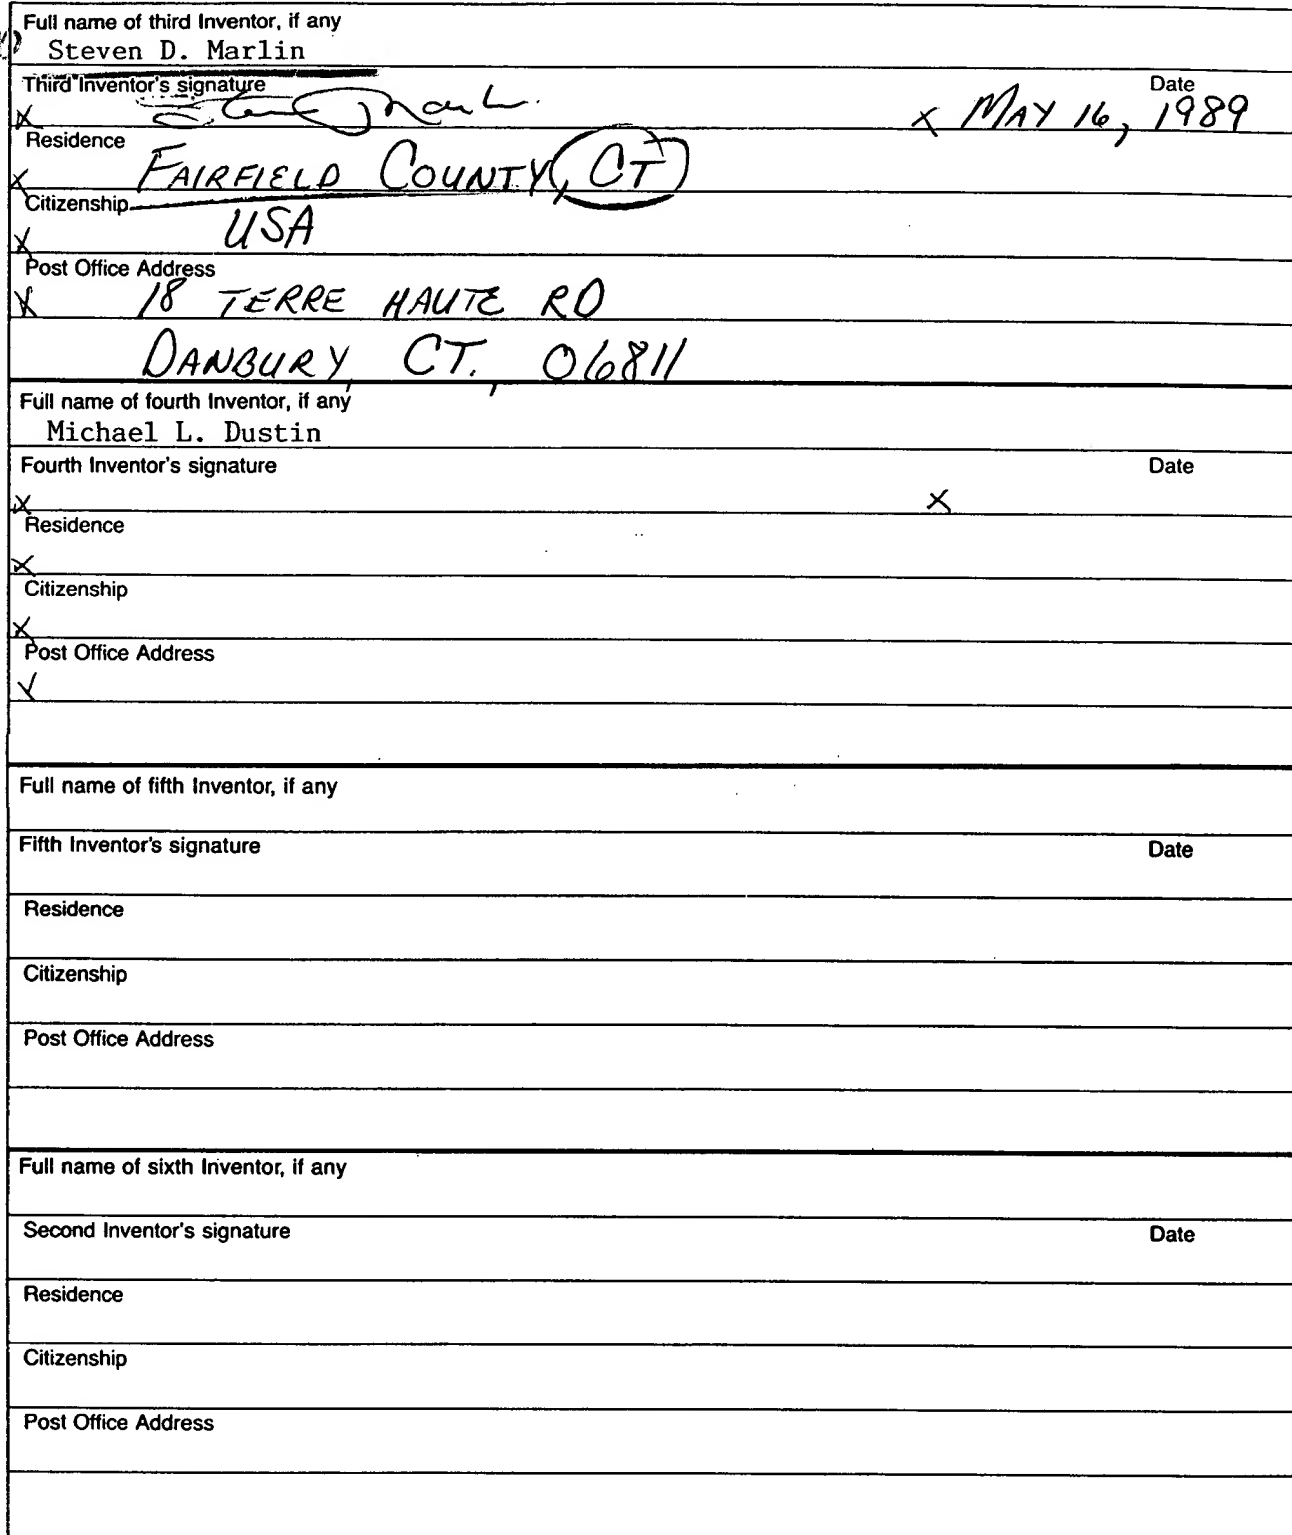 Full name of third Inventor, if any
Steven D. Marlin
Third Inventor's signature Date
X Steven Marlin X MAY 16, 1989
Residence
X FAIRFIELD COUNTY, CT
Citizenship
X USA
Post Office Address
X 18 TERRE HAUTE RD
DANBURY, CT., 06811
Full name of fourth Inventor, if any
Michael L. Dustin
Fourth Inventor's signature Date
X X
Residence
X
Citizenship
X
Post Office Address
X
Full name of fifth Inventor, if any
Fifth Inventor's signature Date
Residence
Citizenship
Post Office Address
Full name of sixth Inventor, if any
Second Inventor's signature Date
Residence
Citizenship
Post Office Address